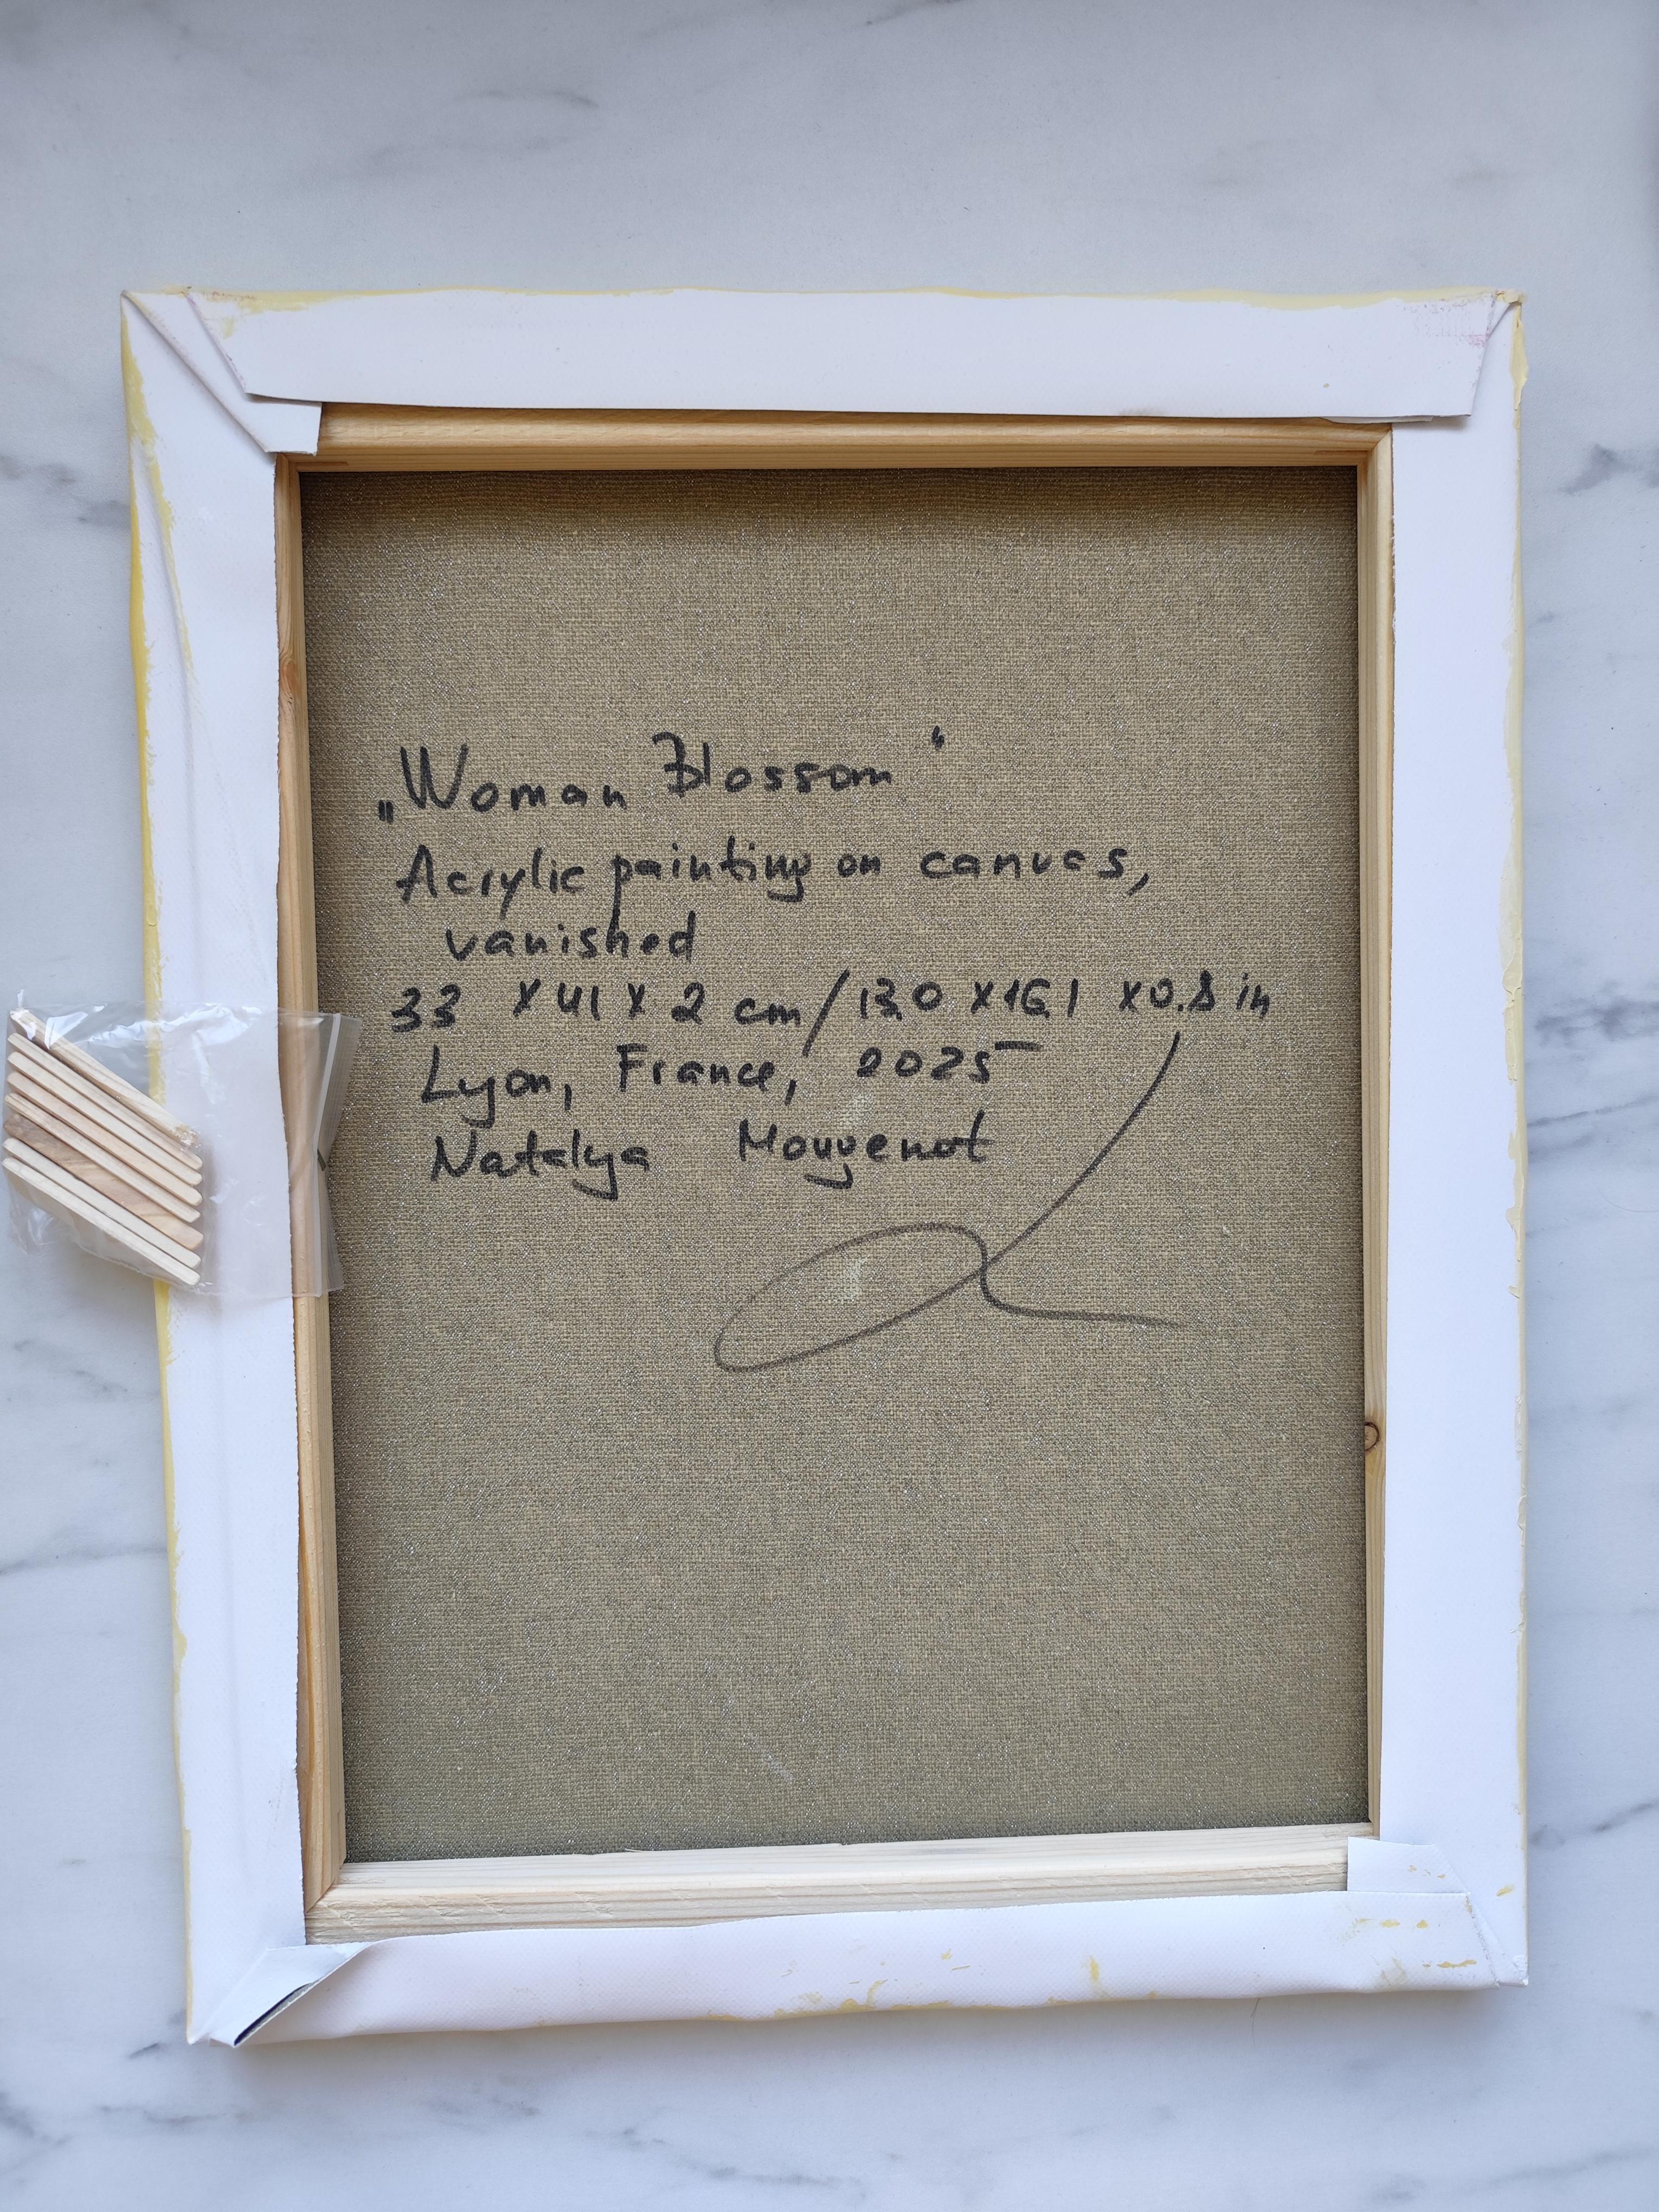 „Woman Blossom“
Acrylic painting on canvas,
vanished
33 x 41 x 2 cm / 13,0 x 16,1 x 0.8 in
Lyon, France, 2025
Natalya Mougenot